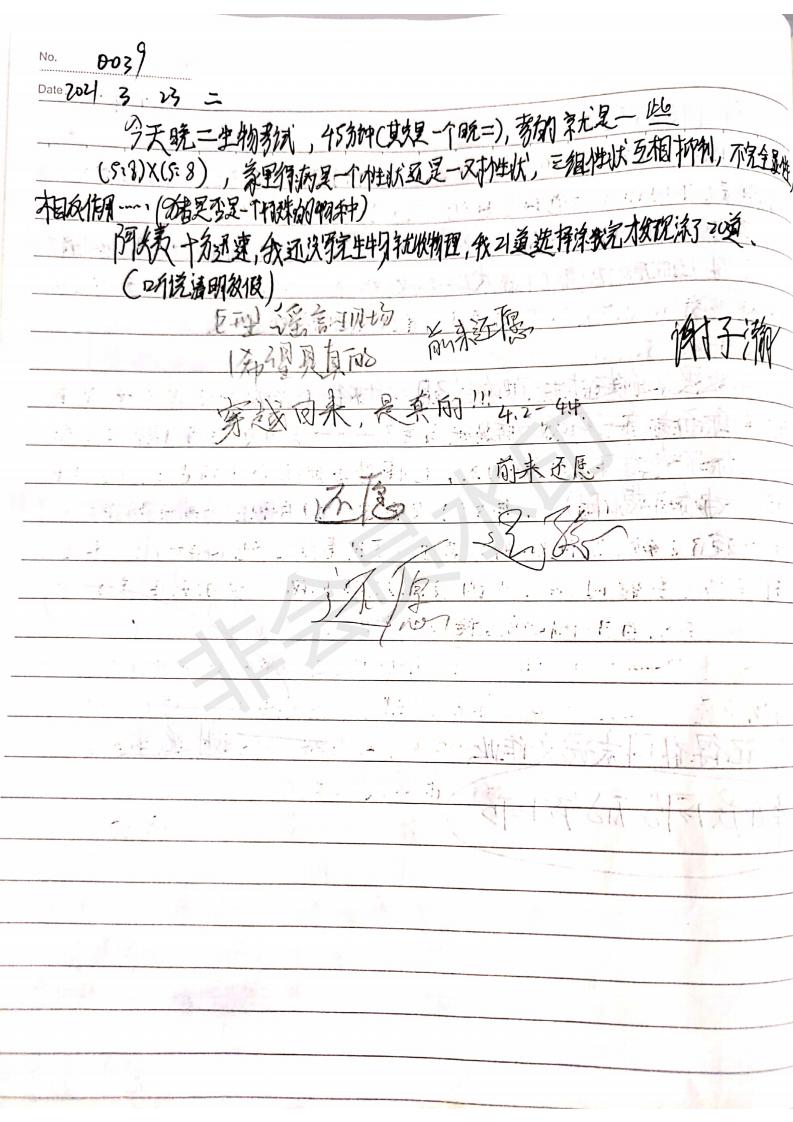 No. 0039
Date 2021. 3. 23 二
今天晚二生物考试，45分钟(其实是一个晚二)，考的东西尤是一些
(5:8)X(5:8)，家里得病是一个性状还是一对性状，三组性状互相抑制，不完全显性，
相反作用……(猪是否是一个特殊的物种)
十分迅速，我还没写完生物就收物理，我21道选择涂完才发现添了20道、
(听说清明放假)
巨型谣言现场
前来还愿
谢子瀚
(希望是真的
穿越回来，是真的!!! 4.2-4.4
前来还愿
还愿
还愿
还愿
非会员水印